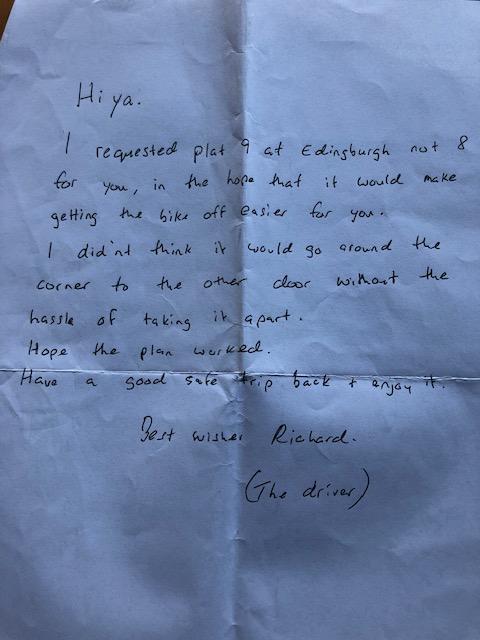 Hi ya.
I requested plat 9 at Edingburgh not 8
for you, in the hope that it would make
getting the bike off easier for you.
I did'nt think it would go around the
corner to the other door without the
hassle of taking it apart.
Hope the plan worked.
Have a good safe trip back + enjoy it.
Best wishes Richard.
(The driver)